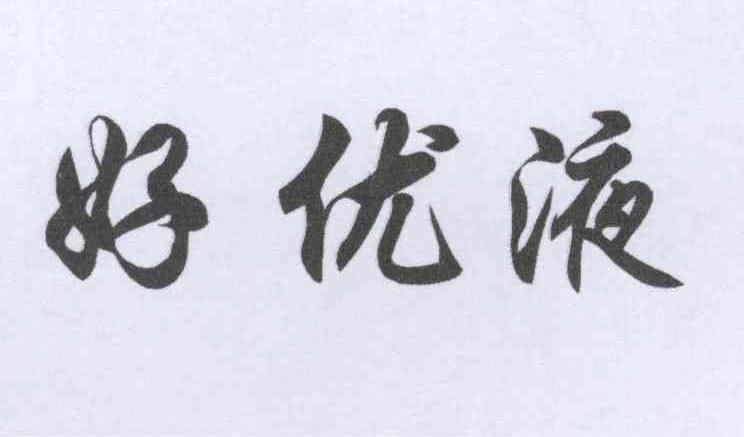 好优液